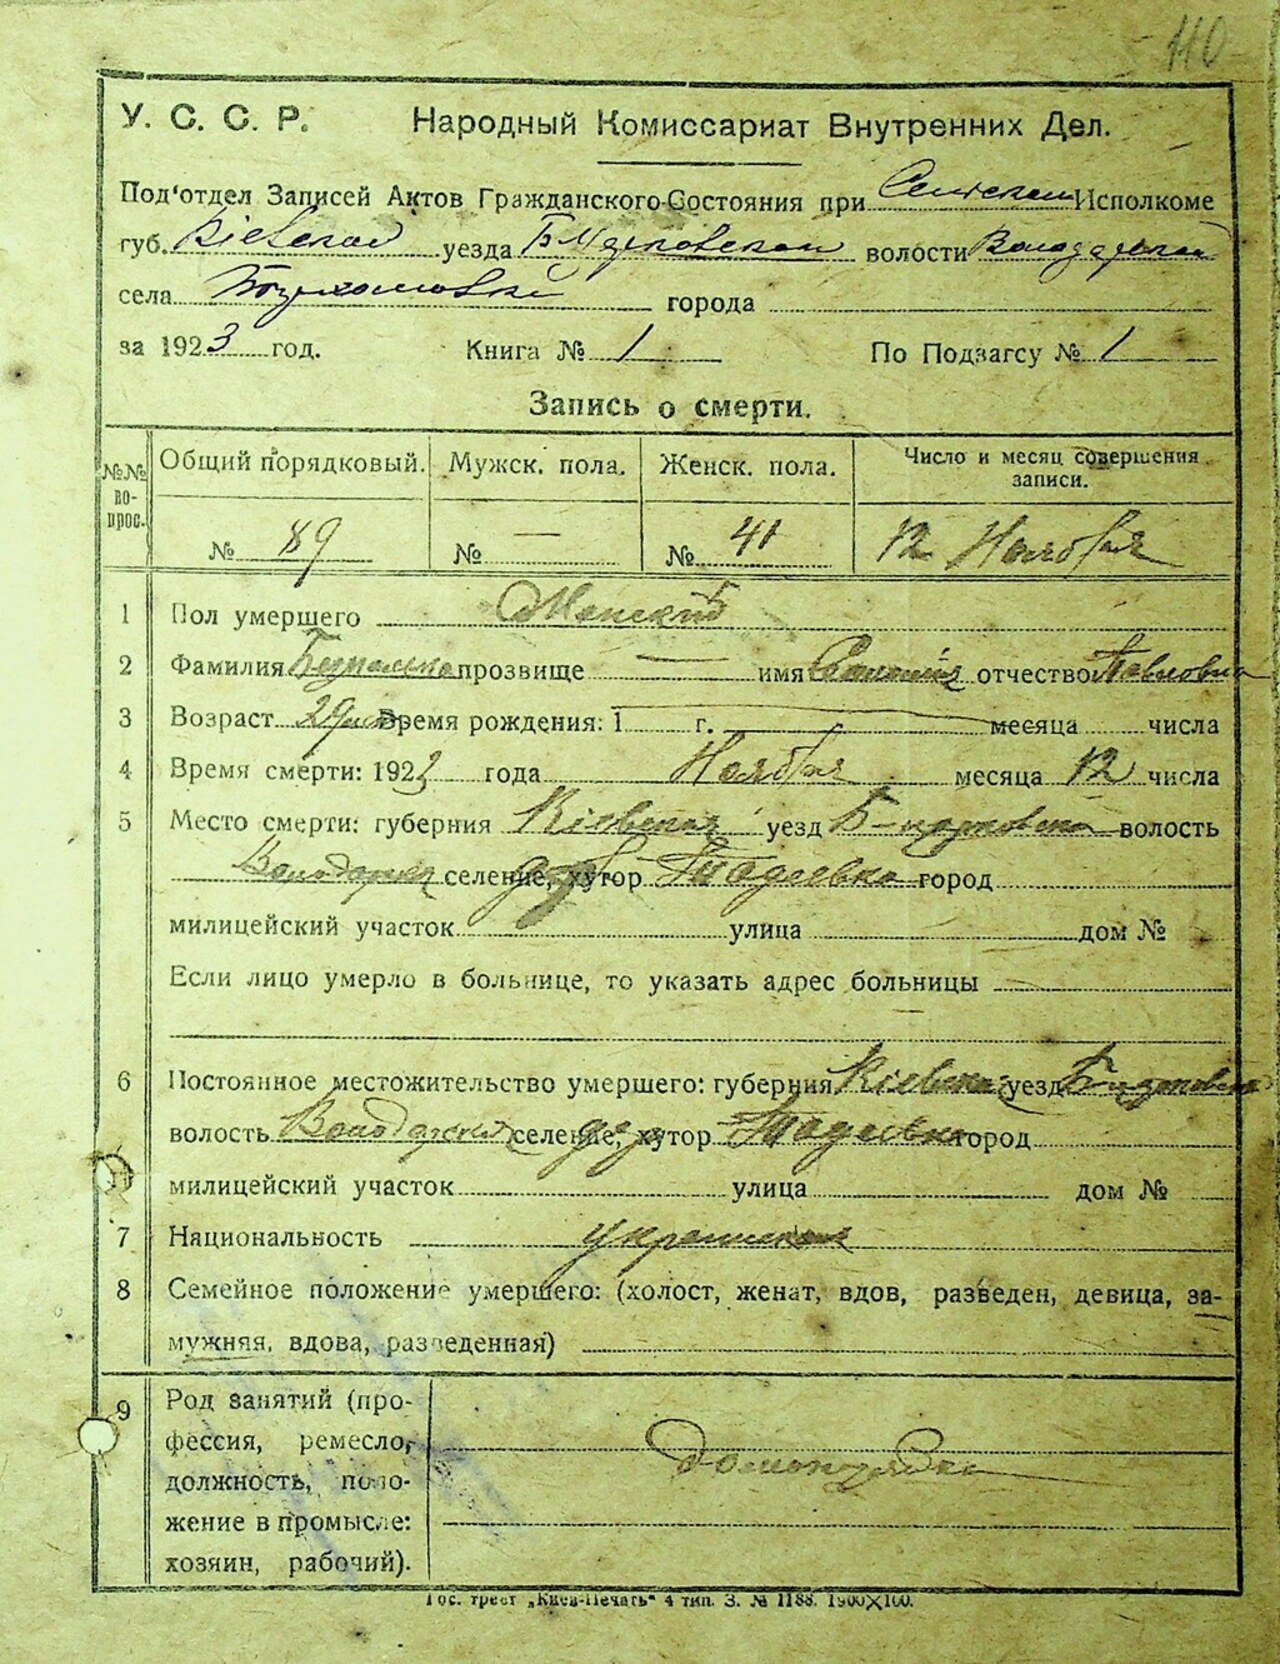 110
У. С. С. Р. Народный Комиссариат Внутренних Дел.
Под'отдел Записей Актов Гражданского Состояния при Сельском Исполкоме
губ. Кіевской уезда волости Володарской
села города
за 1923 год. Книга № 1 По Подзагсу № 1
Запись о смерти.
№№ вопрос. Общий порядковый. Мужск. пола. Женск. пола. Число и месяц совершения записи.
№ 89 № — № 41 12 Ноября
1 Пол умершего Женский
2 Фамилия прозвище — имя отчество Павловна
3 Возраст 29 лет Время рождения: 1 г. месяца числа
4 Время смерти: 1923 года Ноября месяца 12 числа
5 Место смерти: губерния Кіевская уезд Б-церковский волость
Володарск селение, хутор дер Тадеевка город
милицейский участок улица дом №
Если лицо умерло в больнице, то указать адрес больницы
6 Постоянное местожительство умершего: губерния Кіевская уезд Б-церковск
волость Володарская селение, хутор дер Тадеевка город
милицейский участок улица дом №
7 Национальность украинская
8 Семейное положение умершего: (холост, женат, вдов, разведен, девица, за-
мужняя, вдова, разведенная)
9 Род занятий (про-
фессия, ремесло,
должность, поло-
жение в промысле:
хозяин, рабочий).
Гос. трест „Киев-Печать" 4 тип. З. № 1188. 1900×100.